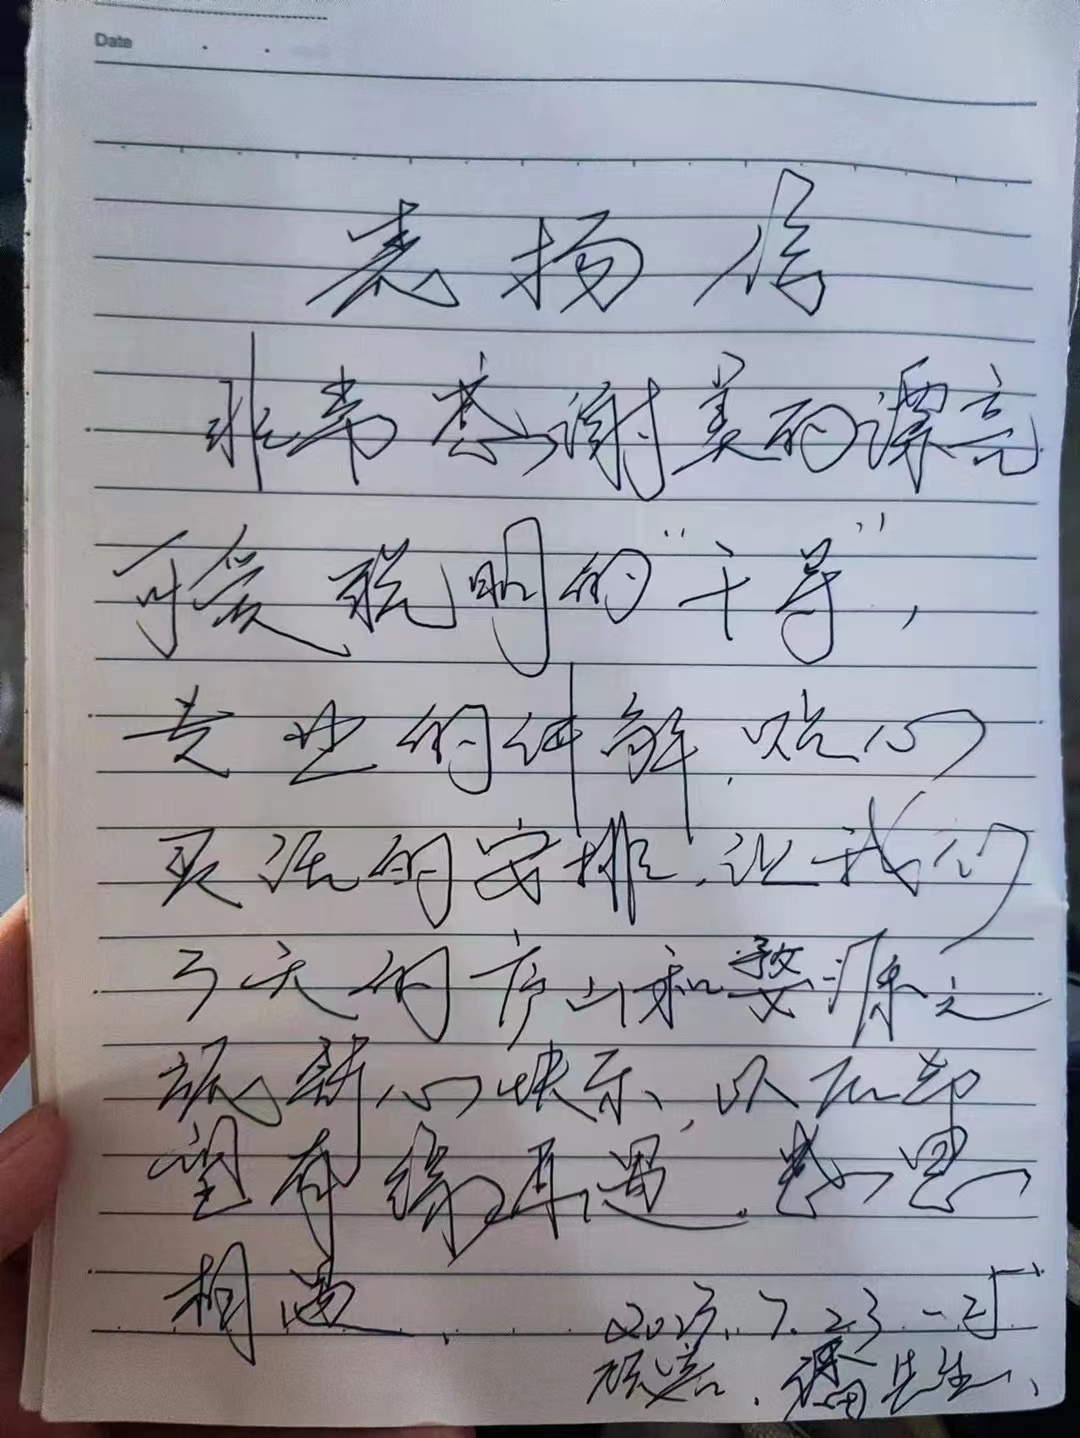 Date
表扬信
非常感谢美的漂亮
可爱聪明的“干导”,
专业的讲解,贴心
灵活的安排,让我们
3天的庐山和婺源之
旅舒心快乐,以后希
望有缘再遇.感恩
相遇.
2023.7.23
先生